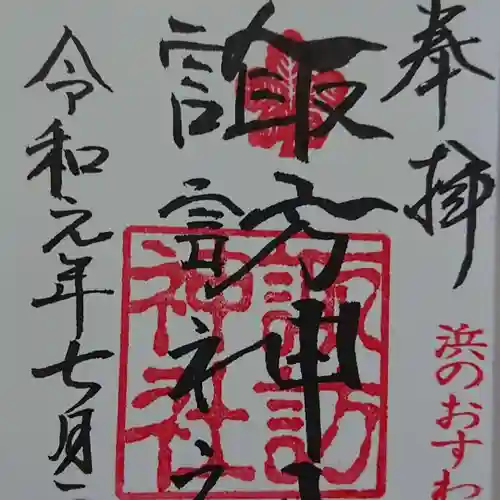 奉拝
浜のおすわ
諏訪神社
諏訪
神社
令和元年七月